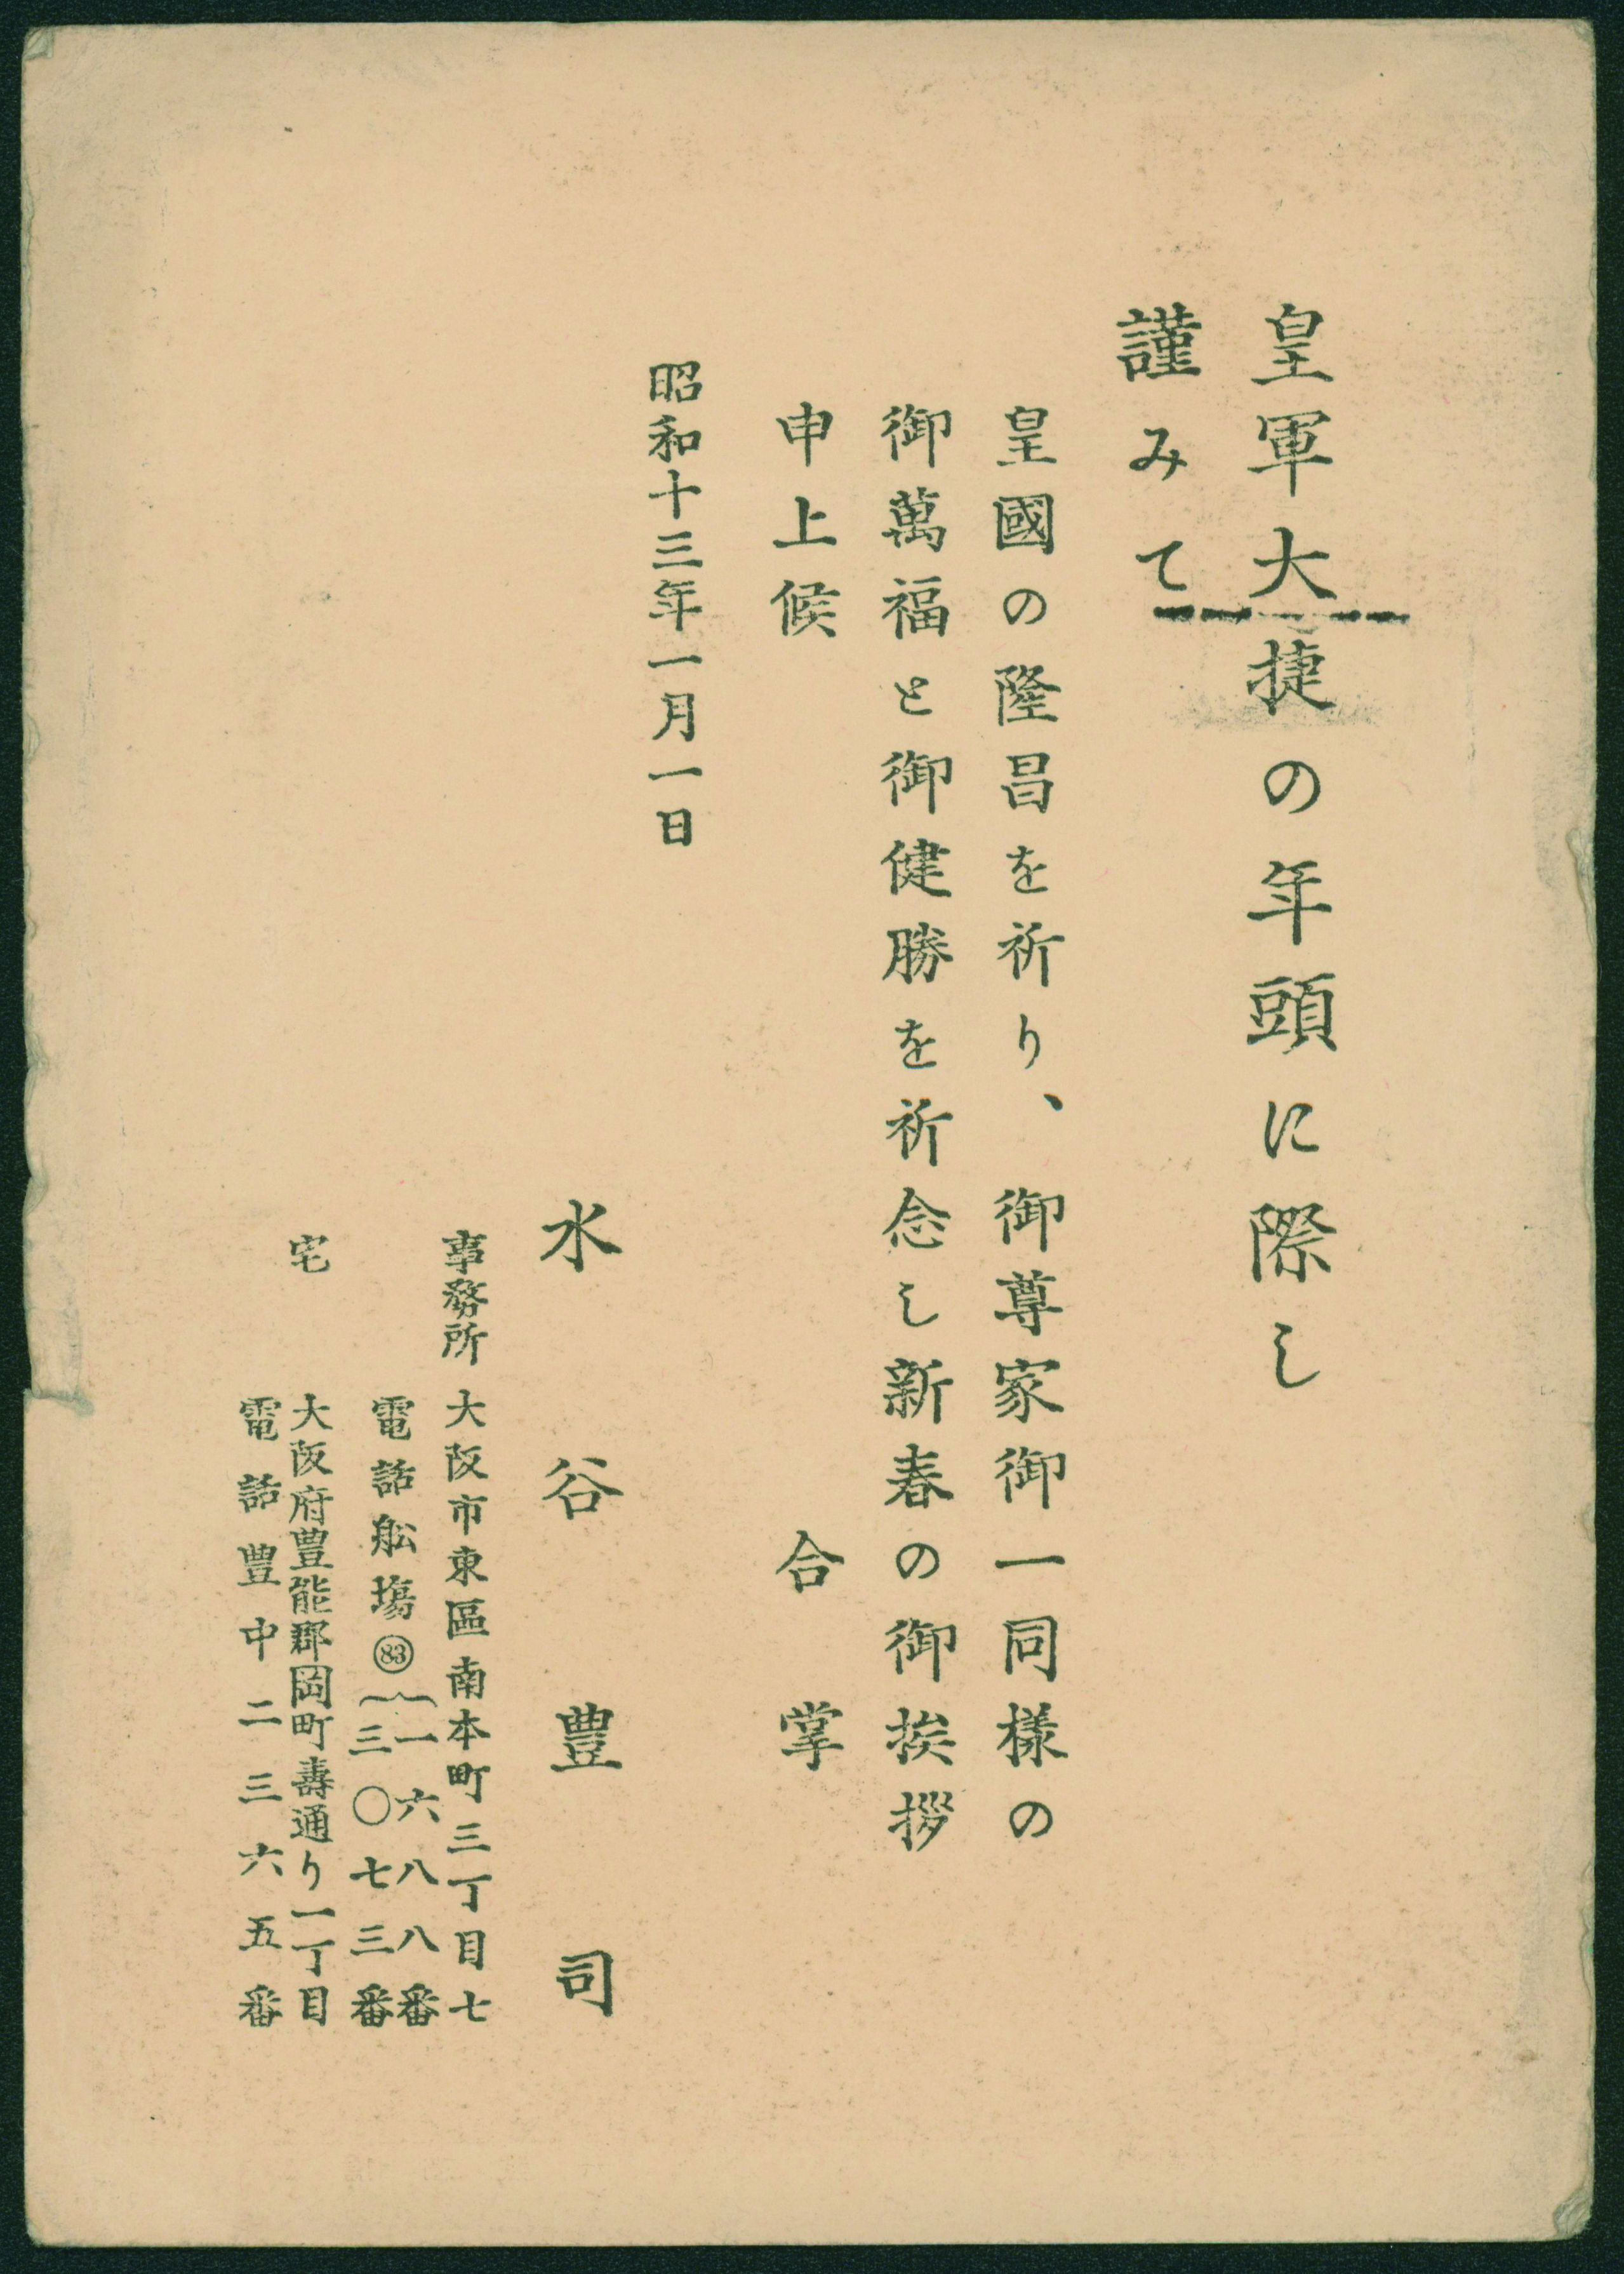 皇軍大捷の年頭に際し
謹みて
皇國の隆昌を祈り、御尊家御一同様の
御萬福と御健勝を祈念し新春の御挨拶
申上候
合掌
昭和十三年一月一日
水谷豊司
事務所 大阪市東區南本町三丁目七
電話船塲㊸{一六八八番
三〇七三番
宅 大阪府豊能郡岡町壽通り一丁目
電話豊中二三六五番